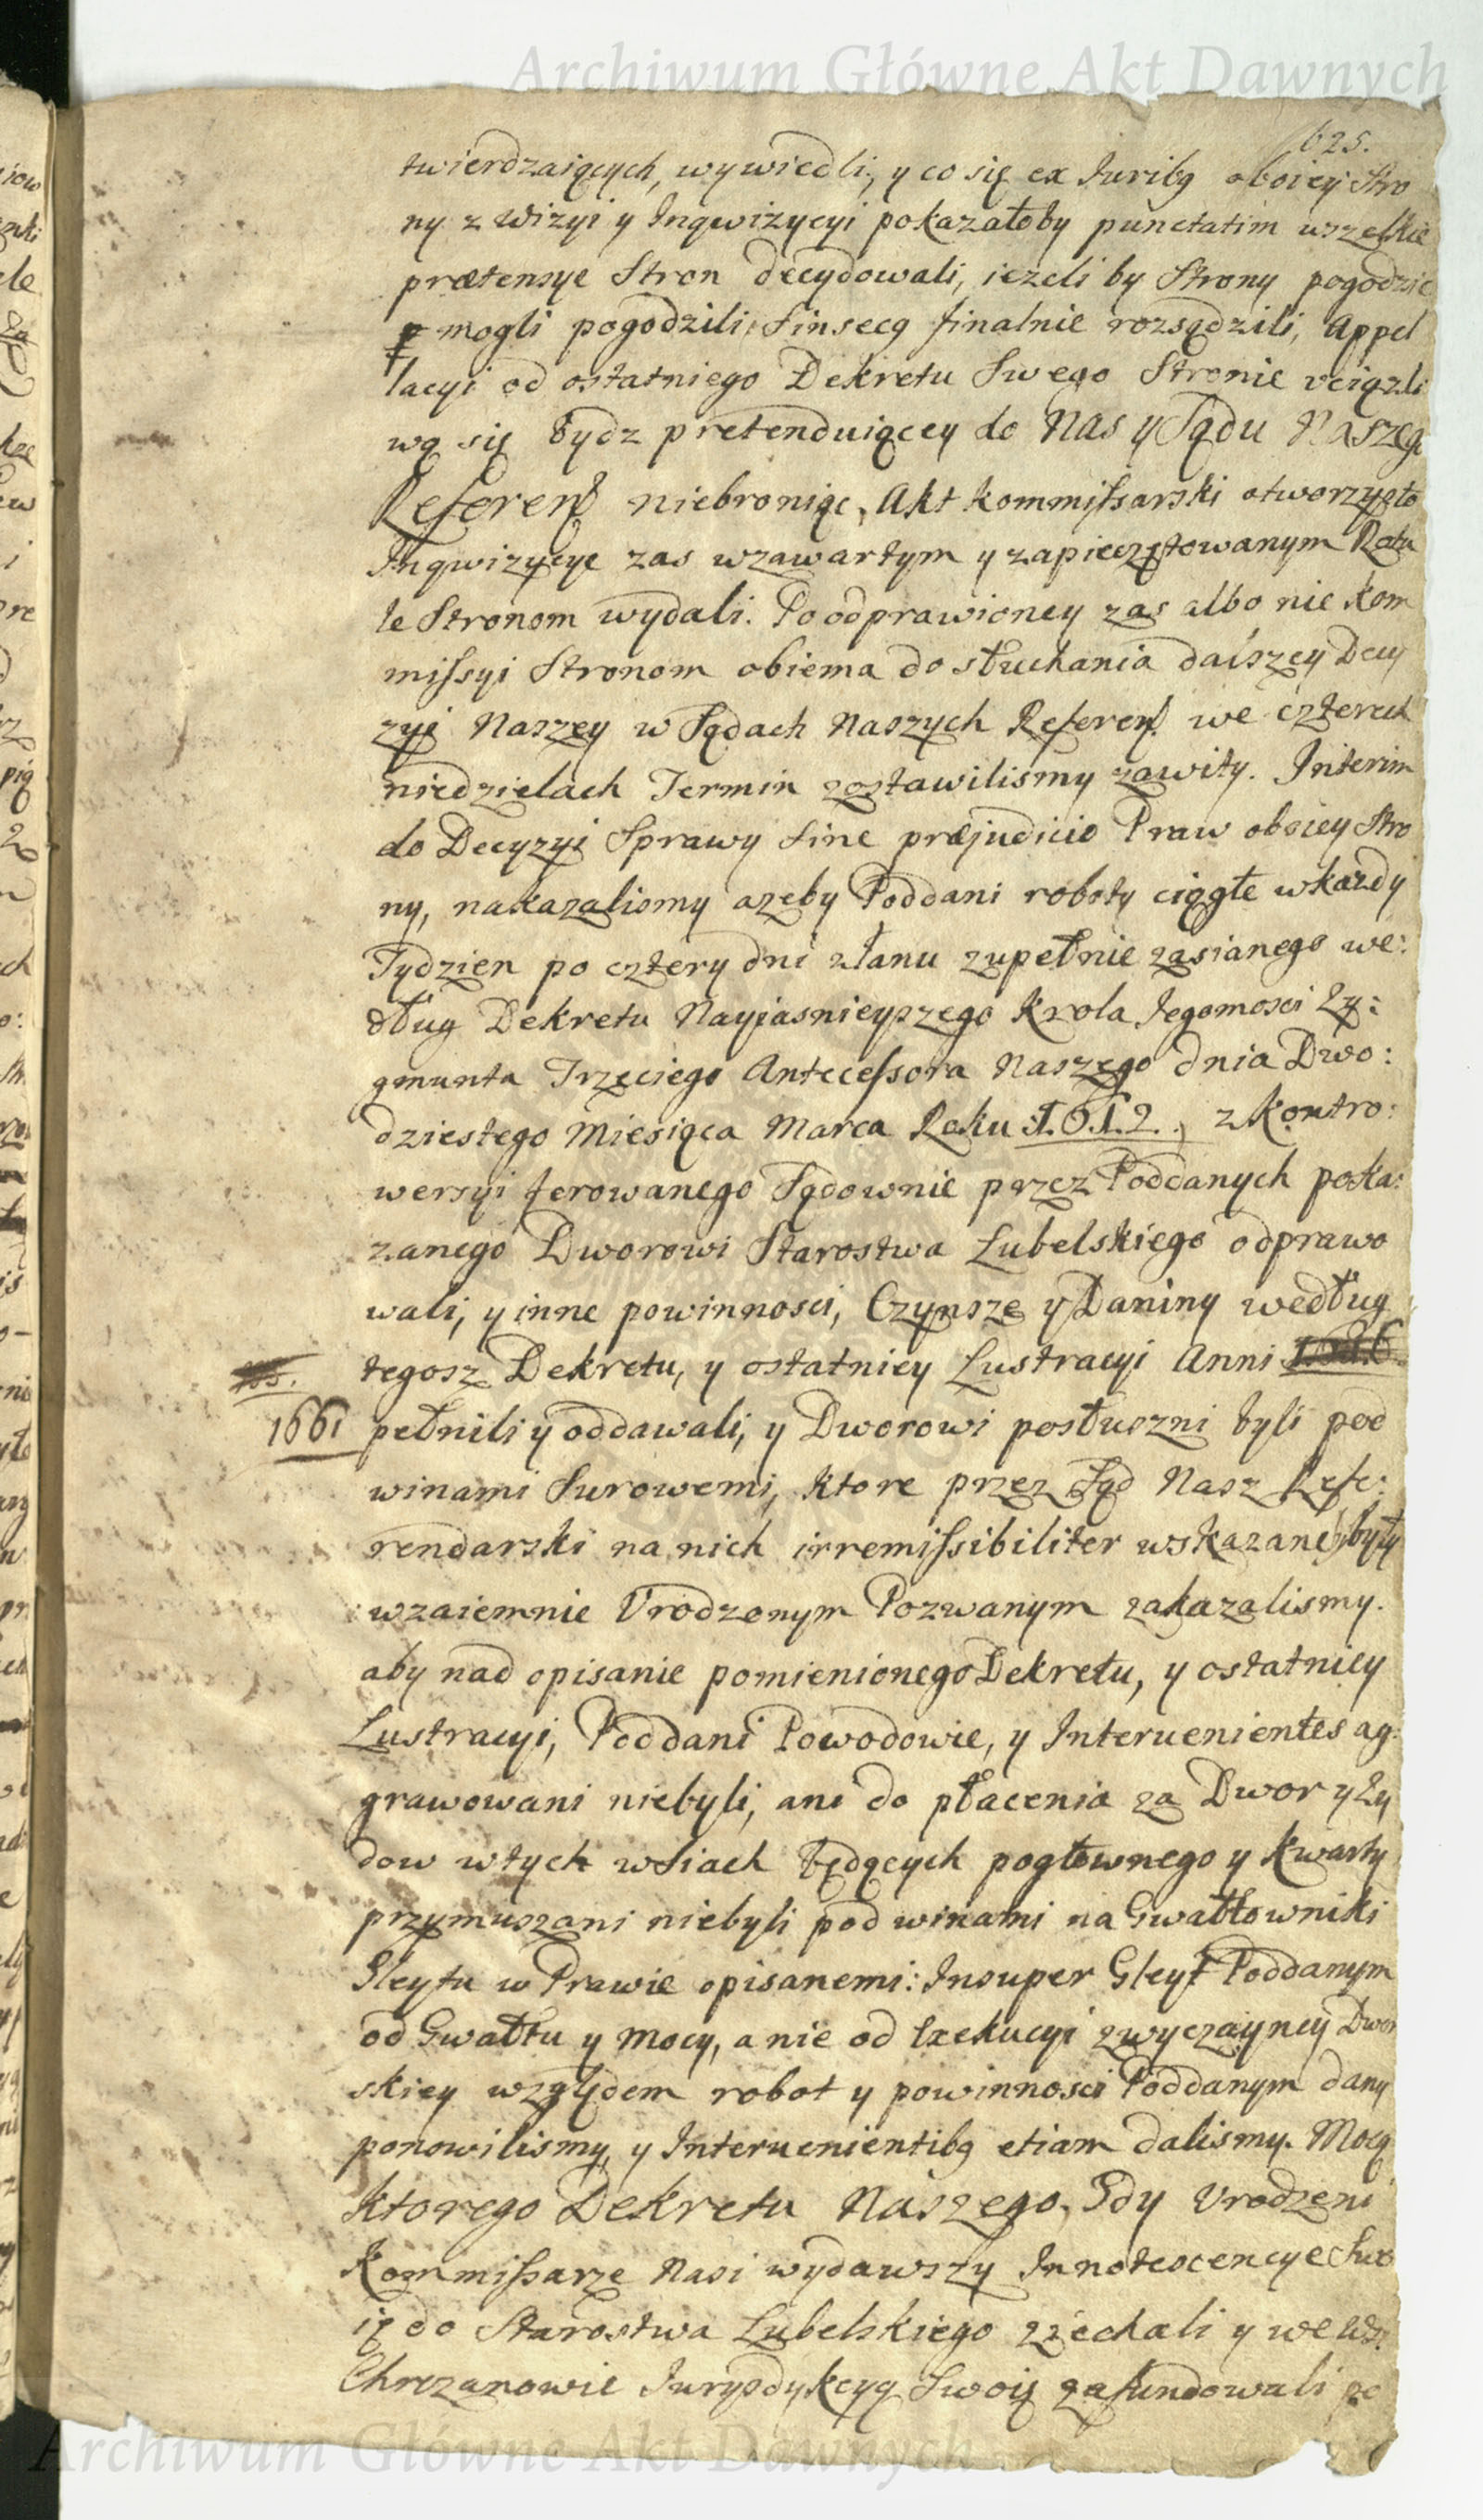 Archiwum Główne Akt Dawnych
625.
twierdzaiących, wywiedli, y co się ex Juribg oboiey Stro
ny z Wizyi y Inqwizycyi pokazałoby punctatim wszelkie
prætensye Stron decydowali, ieżeli by Strony pogodzic
mogli pogodzili, sin secq finalnie rozsądzili, Appel
lacyi od ostatniego Dekretu Swego Stronie vciązli
wą się bydz pretenduiącey do Nas y Sądu Naszeg
Referen niebroniąc, Akt kommissarski otworzysto
Inqwizycye zas w zawartym y zapieczętowanym Rotu
le Stronom wydali. Po odprawioney zas albo nie kom
missyi Stronom obiema do słuchania dalszey Decy
zyi Naszey w Sądach Naszych Referen we czterech
niedzielach Termin zostawilismy zawity. Interim
do Decyzyi Sprawy sine præjudicio Praw oboiey Stro
ny, nakazalismy azeby Poddani roboty ciągłe w kazdy
Tydzien po cztery dni z łanu zupełnie zasianego we:
dług Dekretu Nayjasnieyszego Krola Jegomosci Zy:
gmunta Trzeciego Antecessora Naszego dnia Dwo:
dziestego Miesiąca Marca Roku 1612., z kontro:
wersyi ferowanego Sądownie przez Poddanych poka:
zanego Dworowi Starostwa Lubelskiego odprawo
wali, y inne powinnosci, Czynsze y Daniny według
tegosz Dekretu, y ostatniey Lustracyi Anni
1661 pełnili y oddawali, y Dworowi posłuszni byli pod
winami Surowemi, ktore przez Sąd Nasz Refe:
rendarski na nich irremissibiliter wskazane były
wzaiemnie Vrodzonym Pozwanym zakazalismy.
aby nad opisanie pomienionego Dekretu, y ostatniey
Lustracyi, Poddani Powodowie, y Interuenientes ag:
grawowani niebyli, ani do płacenia za Dwor y Zy
dow w tych wsiach będących pogłownego y Kwarty
przymuszani niebyli pod winami na Gwałtowniki
Gleytu w Prawie opisanemi: Insuper Gleyt Poddanym
od Gwałtu y Mocy, a nie od Exekucyi zwyczayney Dwor
skiey względem robot y powinnosci Poddanym dany
ponowilismy, y Interuenientibg etiam dalismy. Mocą
ktorego Dekretu Naszego, Gdy Vrodzeni
Kommissarze Nasi wydawszy Innotescencye Swo
ię do Starostwa Lubelskiego zjechali y we Wsi
Chrzanowie Jurysdykcyą Swoię zafundowali po
Archiwum Główne Akt Dawnych